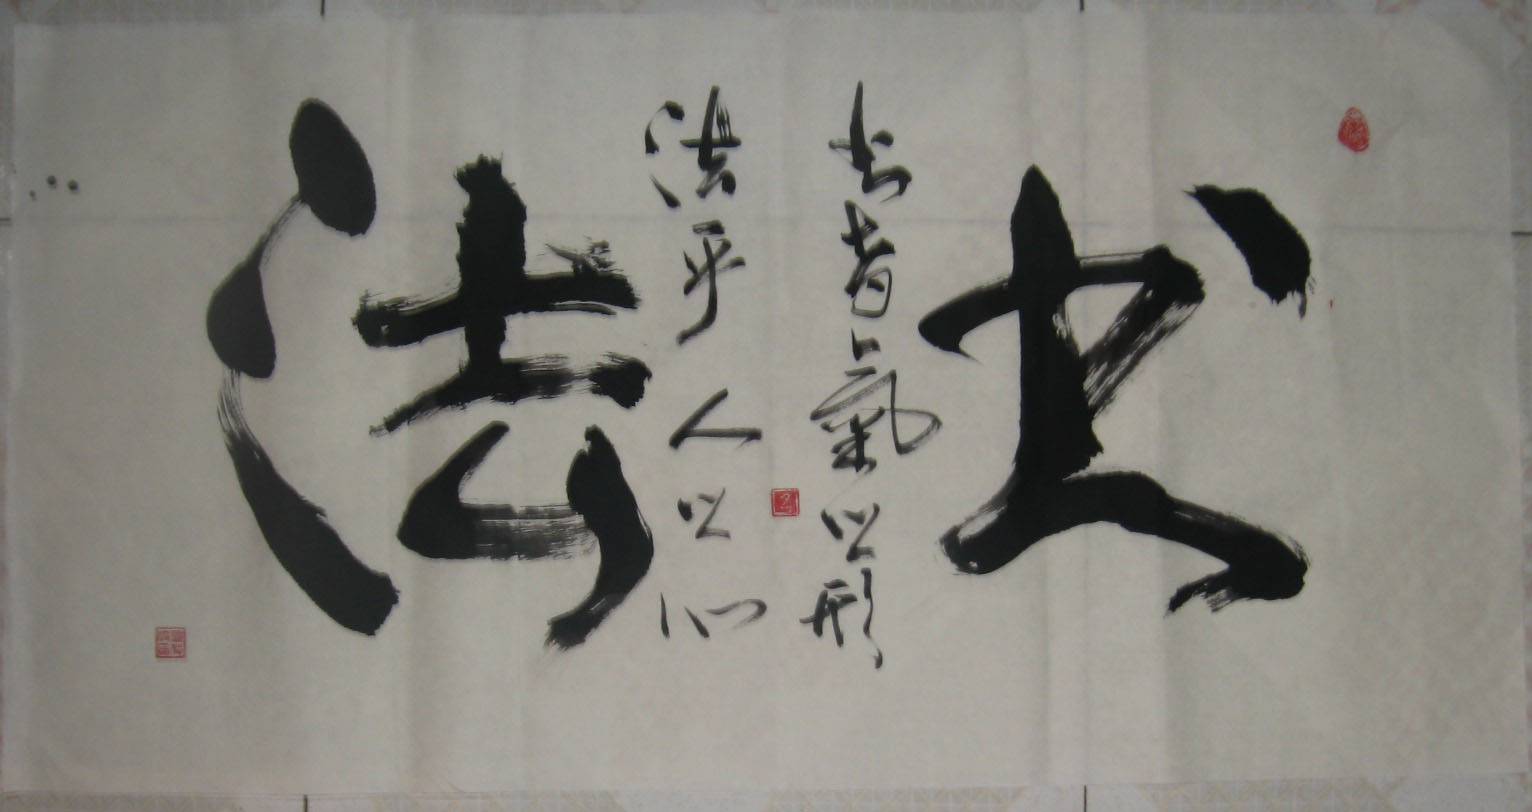 书
书者氣以形
法乎人以心
法